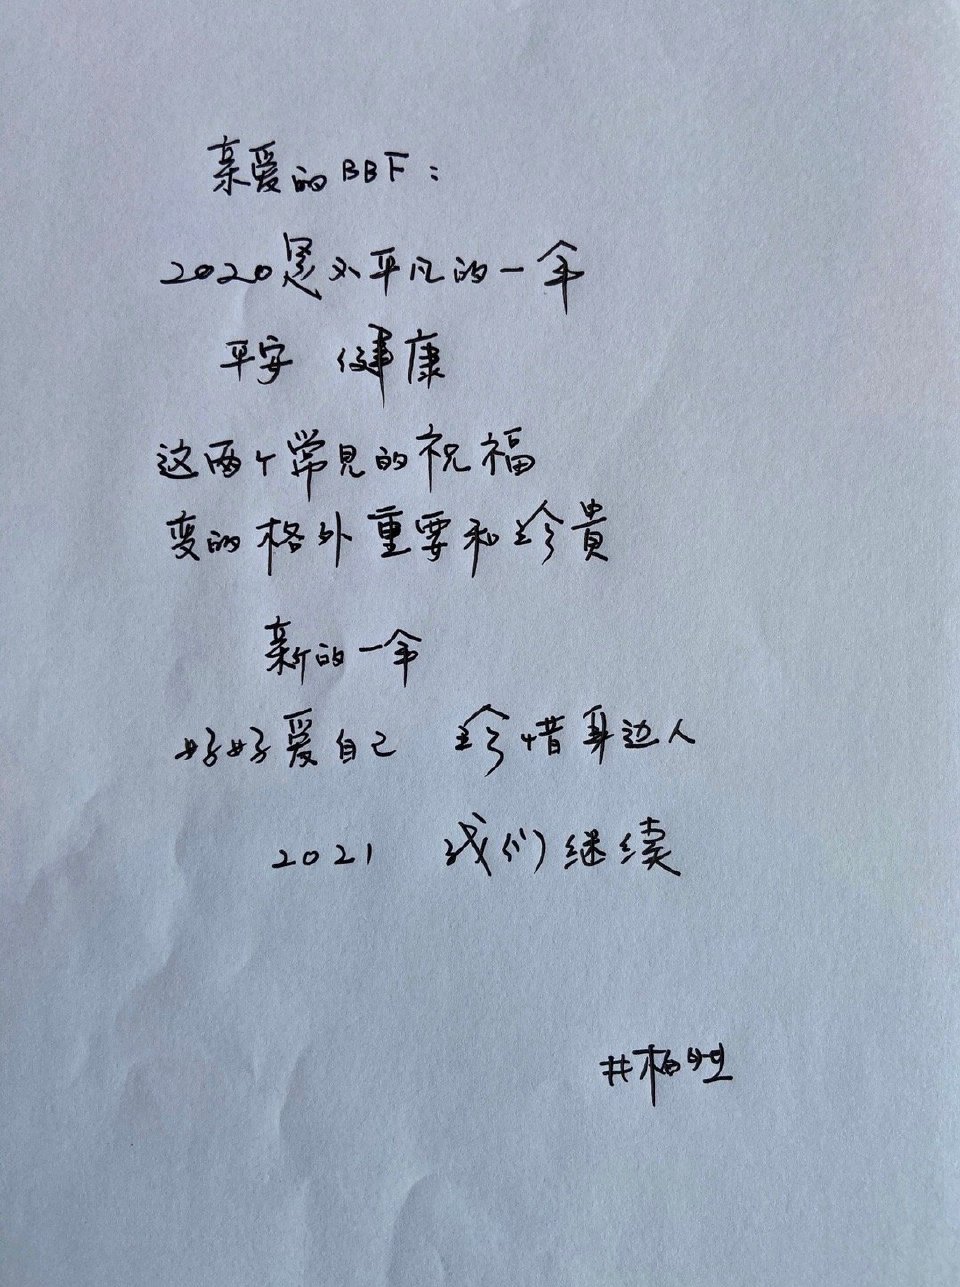 亲爱的BBF:
2020是不平凡的一年
平安 健康
这两个常见的祝福
变的格外重要和珍貴
新的一年
好好爱自己 珍惜身边人
2021 我们继续
#柏